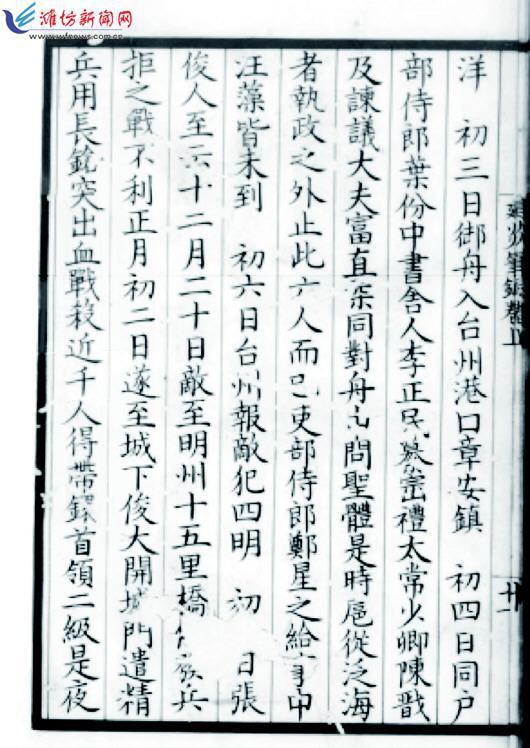 潍坊新闻网
www.wfnews.com.cn
建炎筆錄卷上
洋 初三日御舟入台州港口章安鎮 初四日同户
部侍郎葉份中書舍人李正民綦崈禮太常少卿陳戩
及諫議大夫富直柔同對舟中問聖體是時扈從泛海
者執政之外止此六人而已吏部侍郎鄭星之給事中
汪藻皆未到 初六日台州報敵犯四明 初 日張
俊人至云十二月二十日敵至明州十五里橋 兵
拒之戰不利正月初二日遂至城下俊大開城門遣精
兵用長 突出血戰殺近千人得帶鐶首領二級是夜